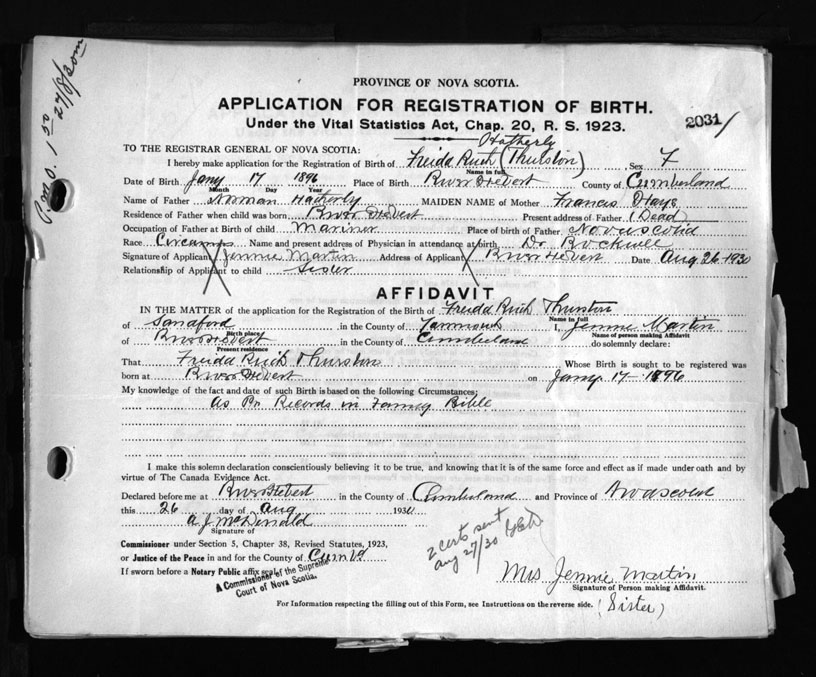 P.M.O. 1 05
27/8/30
PROVINCE OF NOVA SCOTIA.
APPLICATION FOR REGISTRATION OF BIRTH.
Under the Vital Statistics Act, Chap. 20, R. S. 1923.
2031/
Hatherly
TO THE REGISTRAR GENERAL OF NOVA SCOTIA:
I hereby make application for the Registration of Birth of Freida Ruth (Thurston) Sex F
Name in full
Date of Birth Jany 17 1896 Place of Birth River Hebert County of Cumberland
Month Day Year
Name of Father Norman Hatherly MAIDEN NAME of Mother Francis Hays
Residence of Father when child was born River Hebert Present address of Father (Dead)
Occupation of Father at Birth of child Mariner Place of birth of Father Novascotia
Race Name and present address of Physician in attendance at birth, Dr Rockwell
Signature of Applicant Jennie Martin Address of Applicant River Hebert Date Aug 26 1930
Relationship of Applicant to child Sister
AFFIDAVIT
IN THE MATTER of the application for the Registration of the Birth of Freida Ruth Thurston
Name in full
of Sandford in the County of Yarmouth I, Jennie Martin
Birth place Name of person making Affidavit
of River Hebert in the County of Cumberland do solemnly declare:
Present residence
That Freida Ruth Thurston Whose Birth is sought to be registered was
born at River Hebert on Jany 17 - 1896
My knowledge of the fact and date of such Birth is based on the following Circumstances:
As Per Records in Famey Bible
I make this solemn declaration conscientiously believing it to be true, and knowing that it is of the same force and effect as if made under oath and by
virtue of The Canada Evidence Act.
Declared before me at River Hebert in the County of Cumberland and Province of Novascotia
this 26 day of Aug 1930
A J McDonald
Signature of
2 certs sent
Aug 27/30
Commissioner under Section 5, Chapter 38, Revised Statutes, 1923,
or Justice of the Peace in and for the County of Cumbd
If sworn before a Notary Public affix seal of
A Commissioner of the Supreme
Court of Nova Scotia.
Mrs Jennie Martin
Signature of Person making Affidavit.
(Sister)
For Information respecting the filling out of this Form, see Instructions on the reverse side.